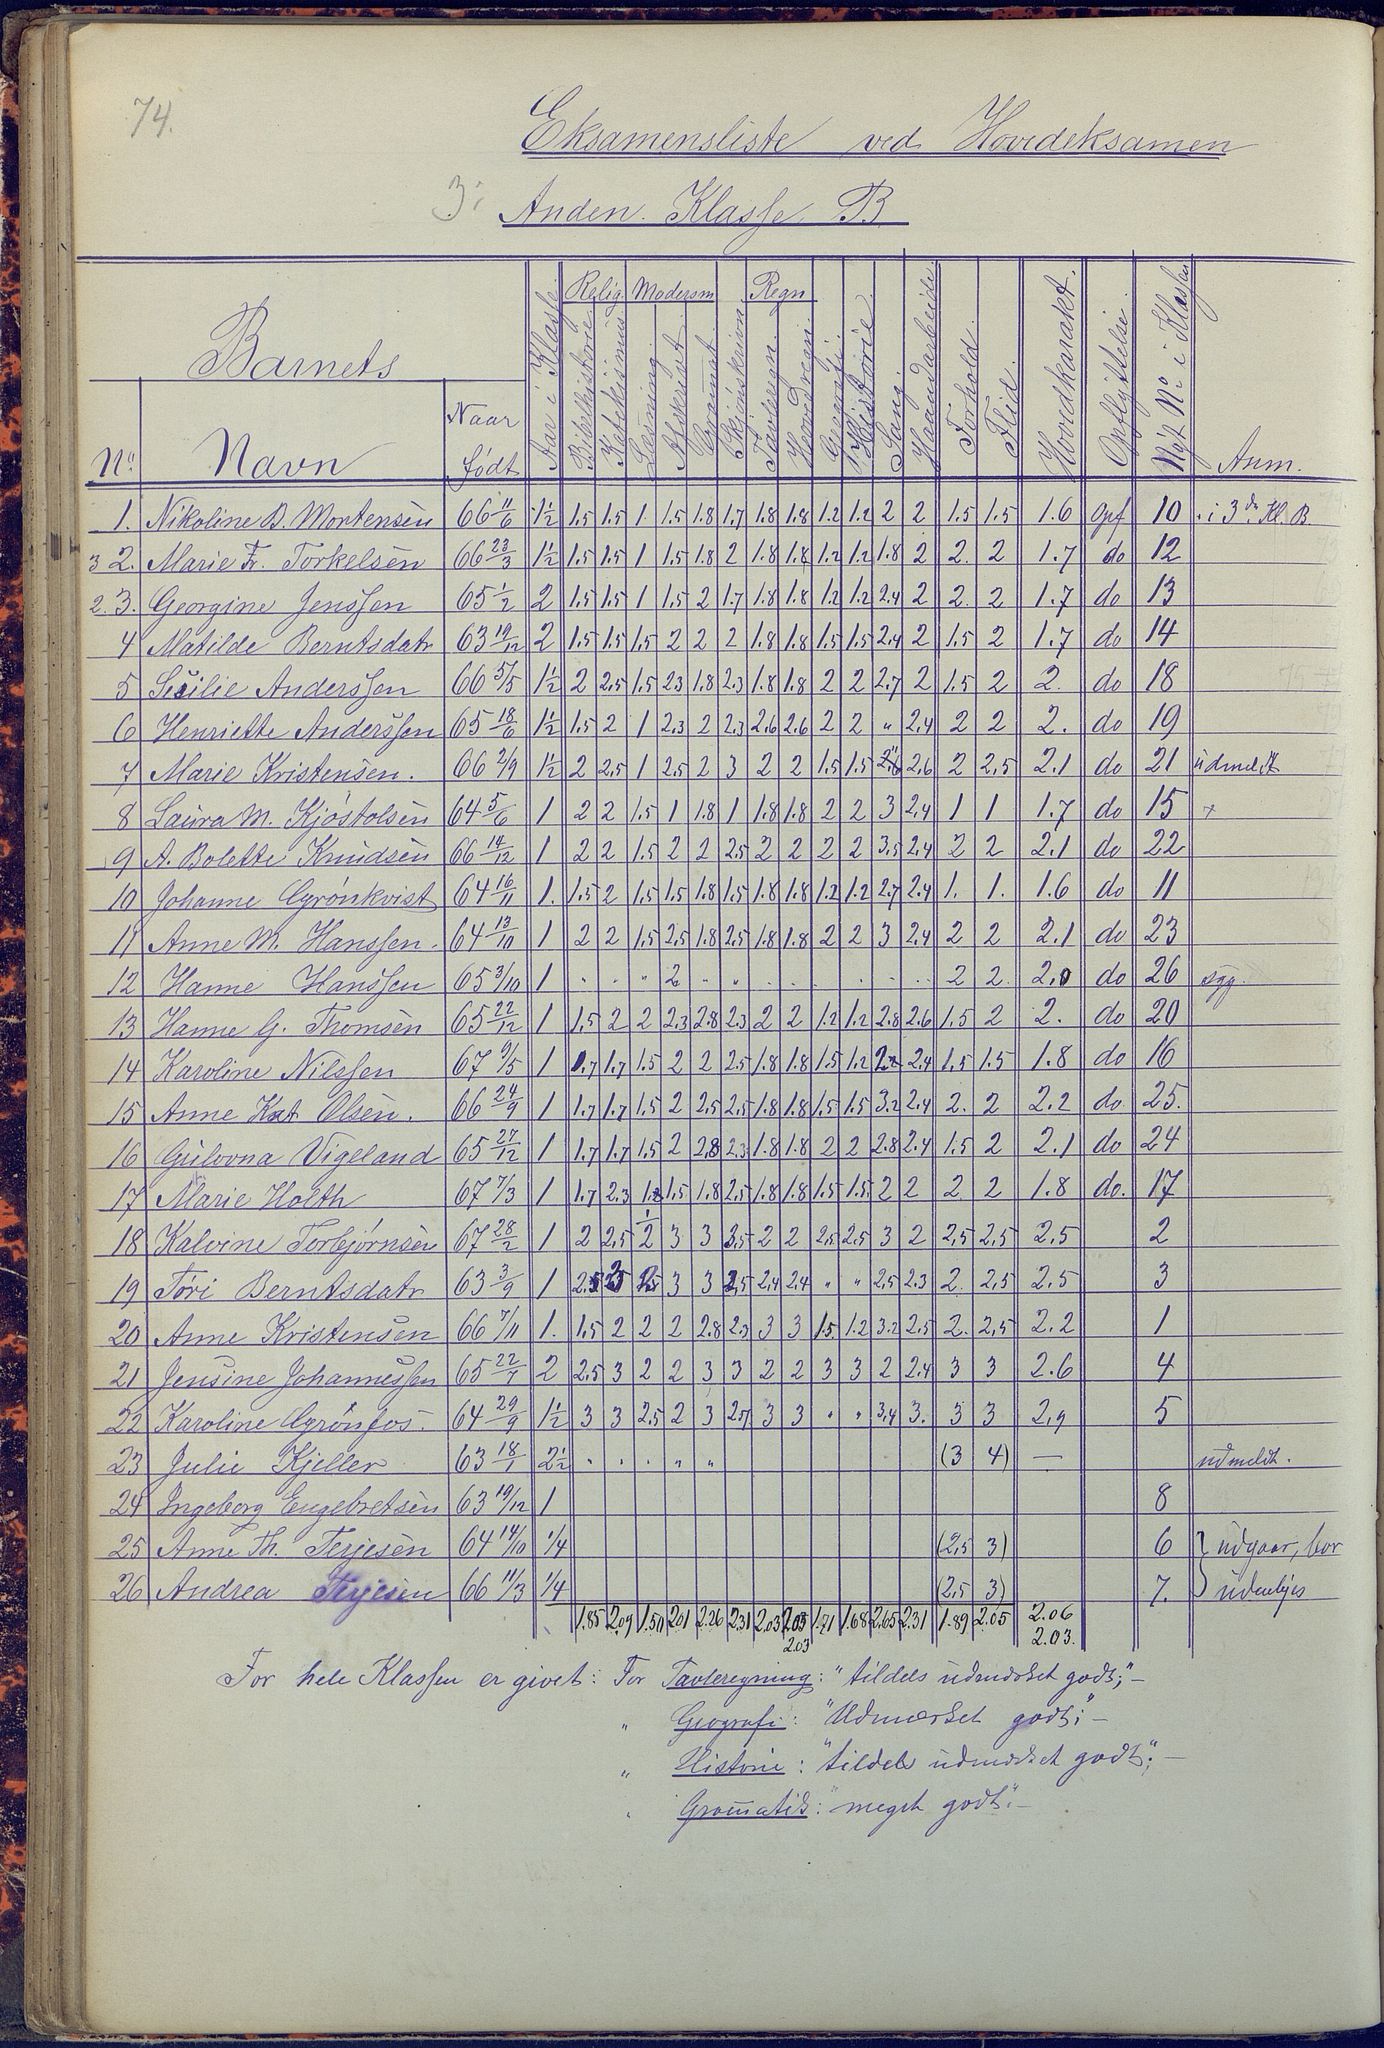 74.
Eksamensliste ved Hovedeksamen
3i Anden Klasse B
Barnets
No. Navn Naar født Aar i Klasse. Relig. Bibelhistorie Katekismus Modersm. Læsning. Afskrivt. Gramat. Skjønskrivn. Regn Tavleregn. Hovedregn. Geografi. Historie. Sang. Haandarbeide. Forhold. Flid. Hovedkarakt. Opflyttelse. Nyt No. i Klassen Anm.
1. Nikoline B. Mortensen 66 11/6 1½ 1.5 1.5 1. 1.5 1.8 1.7 1.8 1.8 1.2 1.2 2 2 1.5 1.5 1.6 Opf 10 i 3de Kl. B
3 2. Marie Fr. Torkelsen 66 23/3 1½ 1.5 1.5 1 1.5 1.8 2 1.8 1.8 1.2 1.2 1.8 2 2. 2 1.7 do 12
2. 3. Georgine Jenssen 65 1/2 2 1.5 1.5 1 1.5 2 1.7 1.8 1.8 1.2 1.2 2.4 2 2. 2 1.7 do 13
4 Matilde Berntsdatr 63 19/12 2 1.5 1.5 1.5 2 2 2 1.8 1.8 1.5 1.5 2.4 2 1.5 2 1.7 do 14
5 Sisilie Anderssen 66 5/5 1½ 2 2.5 1.5 2.3 1.8 2.3 1.8 1.8 2 2 2.7 2 1.5 2 2. do 18
6 Henriette Anderssen 65 18/6 1½ 1.5 2 1 2.3 2 2.3 2.6 2.6 2 2 " 2.4 2 2 2. do 19
7 Marie Kristensen. 66 2/9 1½ 2 2.5 1 2.5 2 3 2 2 1.5 1.5 2.6 2 2.5 2.1 do 21 udmeldt
8 Laura M. Kjøstolsen 64 5/6 1 2 2 1.5 1 1.8 1 1.8 1.8 2 2 3 2.4 1 1 1.7 do 15 +
9 A. Bolette Knudsen 66 14/12 1 2 2 1.5 2 2 2.5 2 2 2 2 3.5 2.4 2 2 2.1 do 22
10 Johanne Grønkvist 64 16/11 1. 1.5 2 1.5 1.5 1.8 1.5 1.8 1.8 1.2 1.2 2.7 2.4 1. 1. 1.6 do 11
11 Anne M. Hanssen. 64 13/10 1 2 2 1.5 2.5 1.8 2.5 1.8 1.8 2 2 3 2.4 2 2 2.1 do 23
12 Hanne Hanssen 65 3/10 1 . . " 2 . " . . . . . . 2 2. 2.0 do 26 syg.
13 Hanne G. Thomsen 65 22/12 1 1.5 2 2 2.3 2.8 2.3 2 2 1.2 1.2 2.8 2.6 1.5 2 2. do 20
14 Karoline Nilssen 67 9/5 1 1.7 1.7 1.5 2 2 2.5 1.8 1.8 1.5 1.2 2.4 1.5 1.5 1.8 do 16
15 Anne Kat Olsen. 66 24/9 1 1.7 1.7 1.5 2 2.5 2.5 1.8 1.8 1.5 1.5 3.2 2.4 2. 2 2.2 do. 25.
16 Gulovna Vigeland 65 27/12 1 1.7 1.7 1.5 2 2.8 2.3 1.8 1.8 2 2 2.8 2.4 1.5 2 2.1 do 24
17 Marie Holth 67 7/3 1 1.7 2.3 1.5 1.8 2.5 1.8 1.8 1.5 1.5 2 2 2 2 1.8 do. 17
18 Kalvine Torbjørnsen 67 28/2 1 2 2.5 2 3 3 3.5 2 2 2.5 2.5 3 2 2.5 2.5 2.5 2
19 Tori Berntsdatr 63 3/9 1 2.5 3 3 2.5 2.4 2.4 " " 2.5 2.3 2. 2.5 2.5 3
20 Anne Kristensen 66 7/11 1. 1.5 2 2 2 2.8 2.3 3 3 1.5 1.2 3.2 2.5 2. 2.5 2.2 1
21 Jensine Johannessen 65 22/7 2 2.5 3 2 2 3 3 2 2 3 3 2 2.4 3 3 2.6 4
22 Karoline Grønfos. 64 29/9 1½ 3 3 2.5 2 3 2.7 3 3 " " 3.4 3. 3 3 2.9 5
23 Julie Kjeller 63 18/1 2½ " " " " " (3 4) — udmeldt.
24 Ingeborg Engebretsen 63 19/12 1 8
25 Anne Th. Terjesen 64 14/10 1/4 (2.5 3) 6 } udgaar, bor
26 Andrea Terjesen 66 11/3 1/4 (2.5 3) 7. } udenbyes
1.85 2.09 1.50 2.01 2.26 2.31 2.03 2.03 1.71 1.68 2.65 2.31 1.89 2.05 2.06
2.03 2.03.
For hele Klassen er givet: For Tavleregning: "tildels udmærket godt;" —
" Geografi: "Udmærket godt;" —
" Historie: "tildels udmærket godt"; —
" Gramatik: "meget godt". —